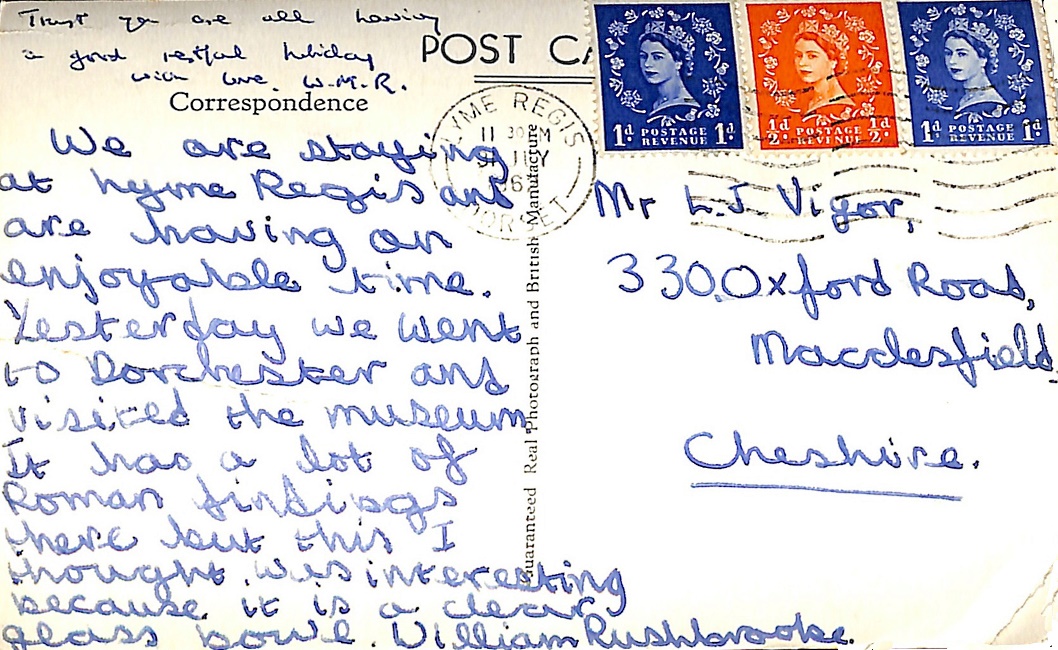 Trust you are all having
a good restful holiday
with love. W.M.R.
POST CA
Correspondence
We are staying
at Lyme Regis and
are having an
enjoyable time.
Yesterday we went
to Dorchester and
visited the museum
It has a lot of
Roman findisgs
there but this I
thought was interesting
because it is a clear
glass bowl. William Rushbrooke.
Guaranteed Real Photograph and British Manufacture
LYME REGIS
11 30 M
DORSET
1d POSTAGE REVENUE 1d
1/2d POSTAGE REVENUE 1/2d
1d POSTAGE REVENUE 1d
Mr L.J Vigor,
330, Oxford Road,
Macclesfield,
Cheshire.